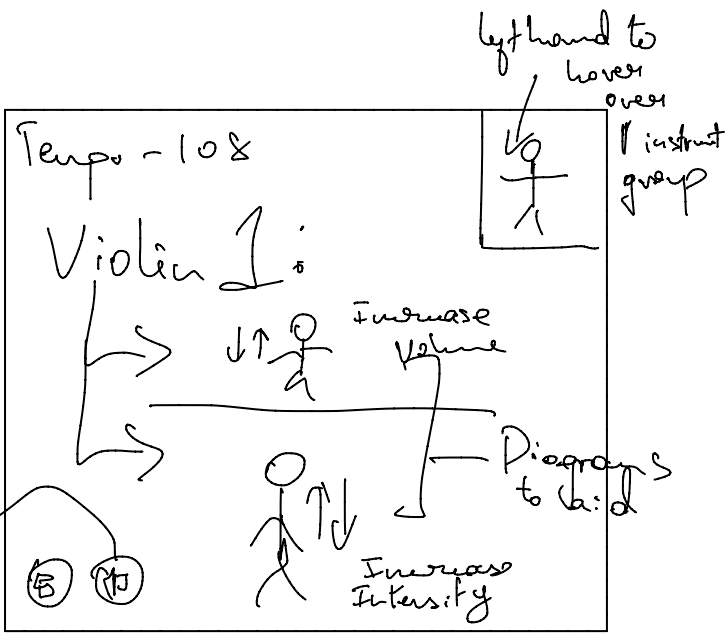 Lefthand to
hover
over
1 instrut
group
Tempo - 108
Violin 1:
Increase
Volume
Diagrams
to aid
Increase
Intensity